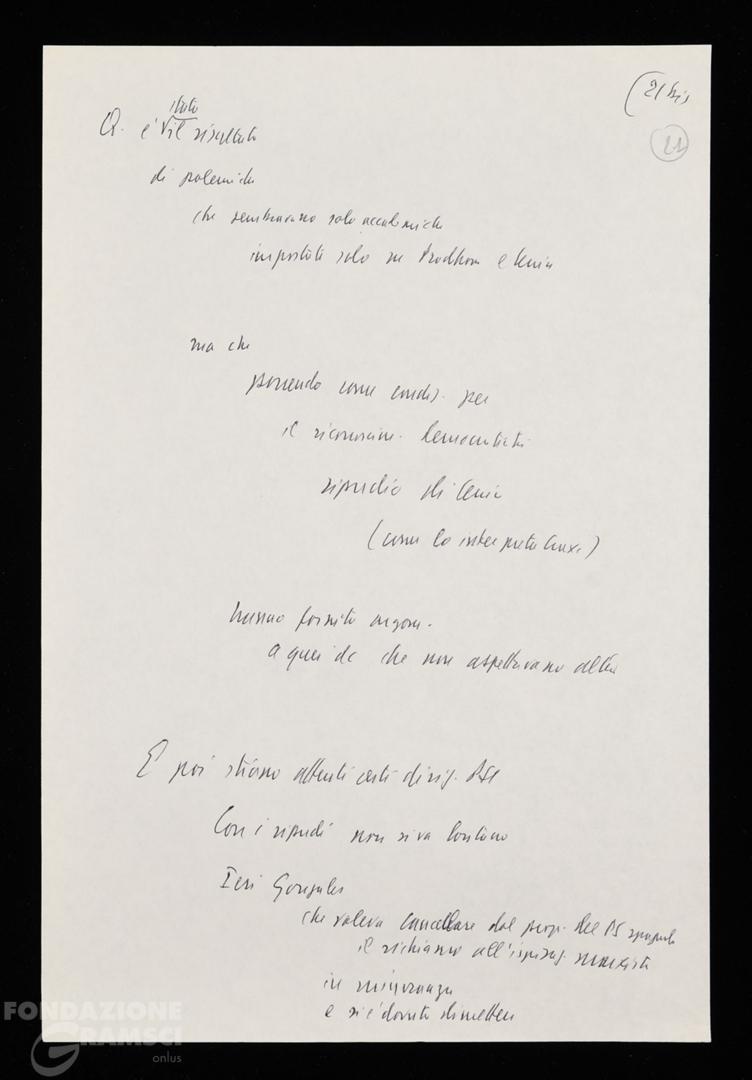 (21 bis
21
Q. è √ il risultato
stato
di polemiche
che sembravano solo accademiche
impostate solo su Prodhon e Lenin
ma che
ponendo come condiz. per
il riconoscim. democraticità
ripudio di Lenin
(come lo interpreta Craxi)
hanno fornito argom.
a quei dc che non aspettavano altro
E poi stiano attenti certi dirig. PSI
Con i ripudi non si va lontano
Ieri Gonzales
che voleva cancellare dal progr. del PS spagnolo
il richiamo all'ispiraz. marxista
in minoranza
e si è dovuto dimettere
FONDAZIONE
GRAMSCI
onlus